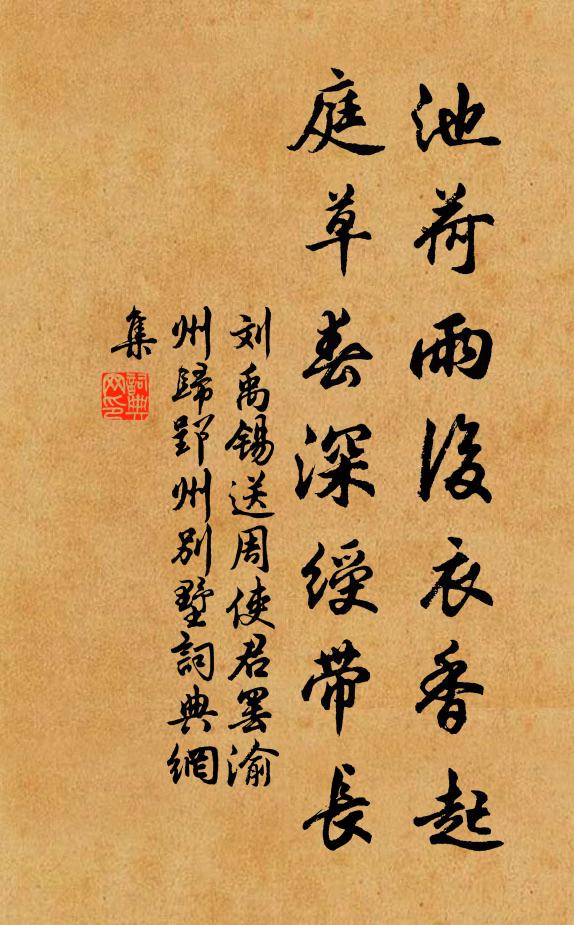 池荷雨後衣香起
庭草春深綬帶長
刘禹锡送周使君罢渝
州歸郢州别墅詞典網
集
詞典
网印